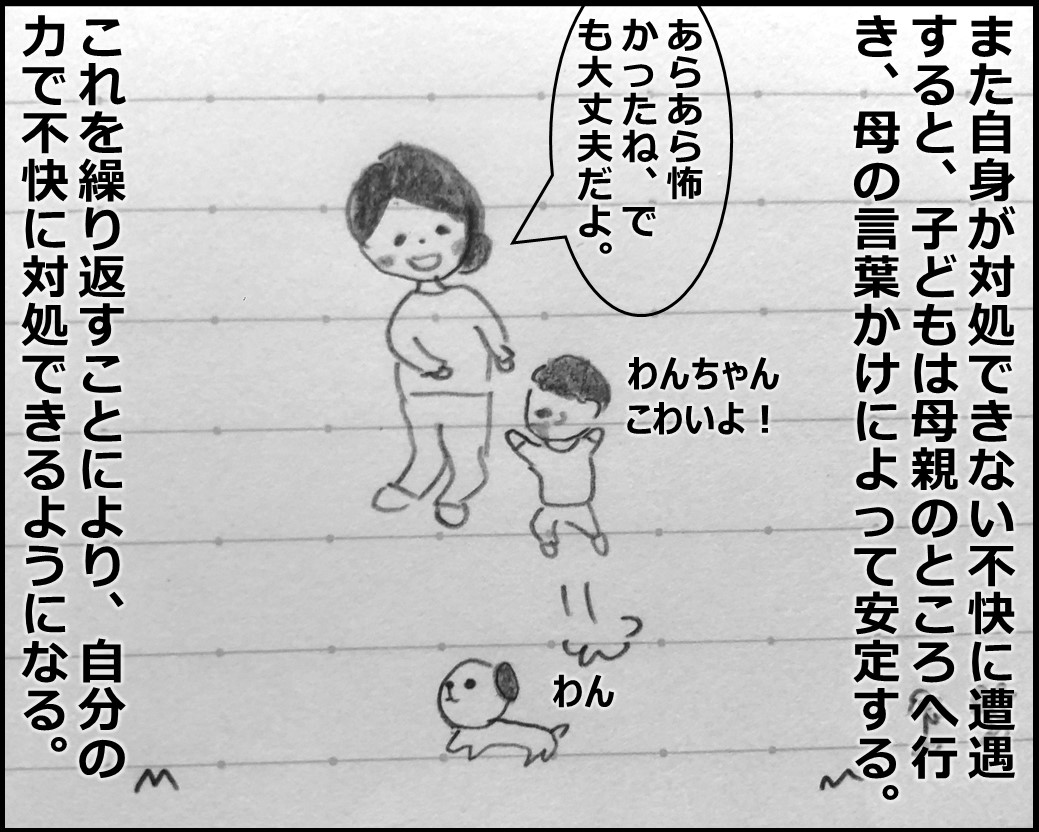 また自身が対処できない不快に遭遇
すると、子どもは母親のところへ行
き、母の言葉かけによって安定する。
あらあら怖
かったね、で
も大丈夫だよ。
わんちゃん
こわいよ！
わん
これを繰り返すことにより、自分の
力で不快に対処できるようになる。